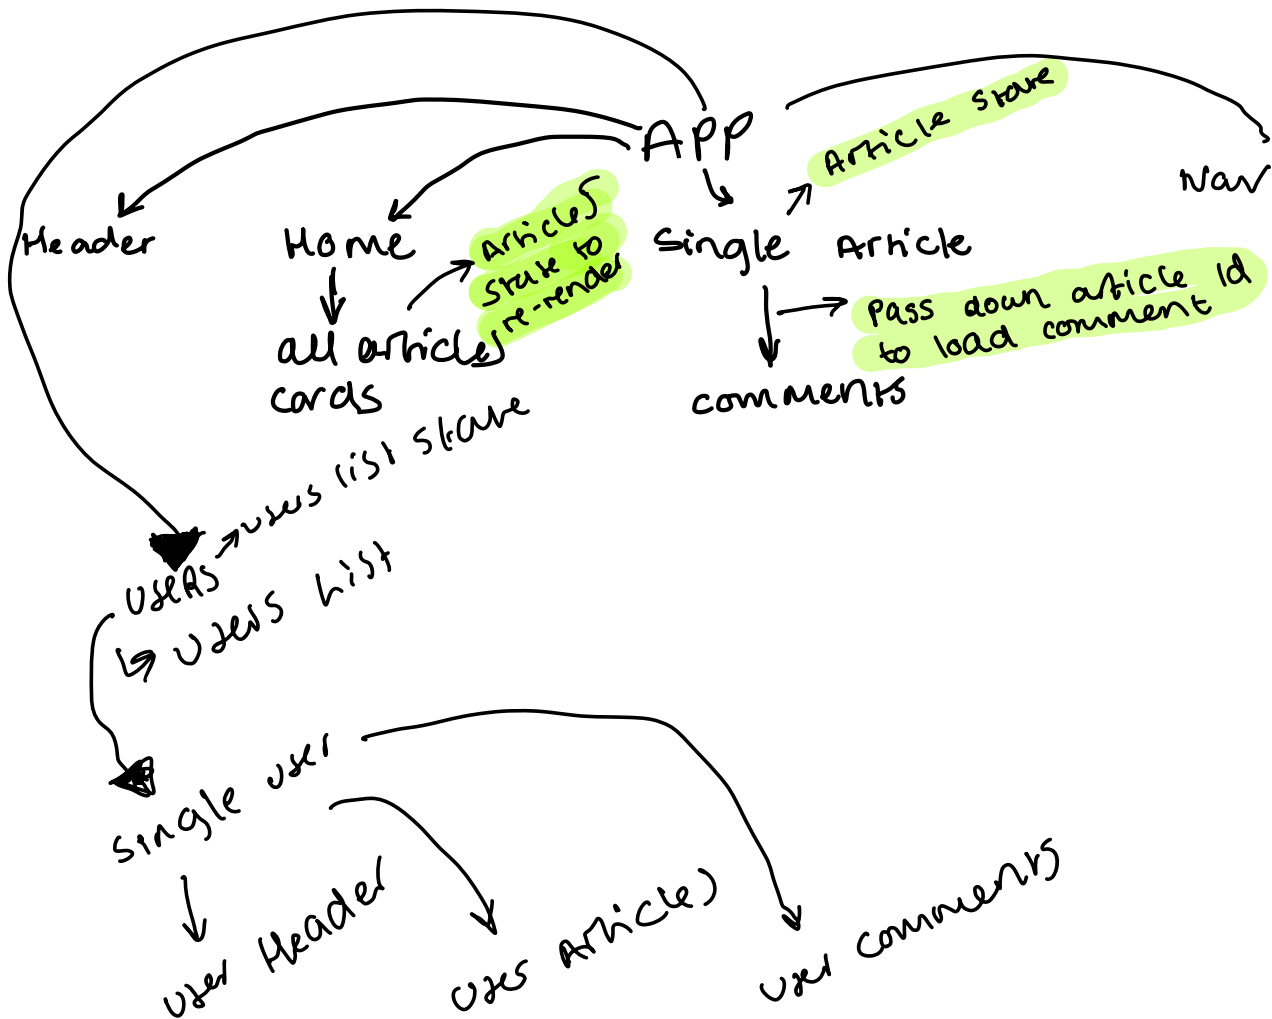 APP
Article state
Nav
Header
Home
Articles
state to
re-render
Single Article
Pass down article Id
to load comment
all articles
cards
comments
users list state
users
users List
single user
user Header
user Articles
user comments